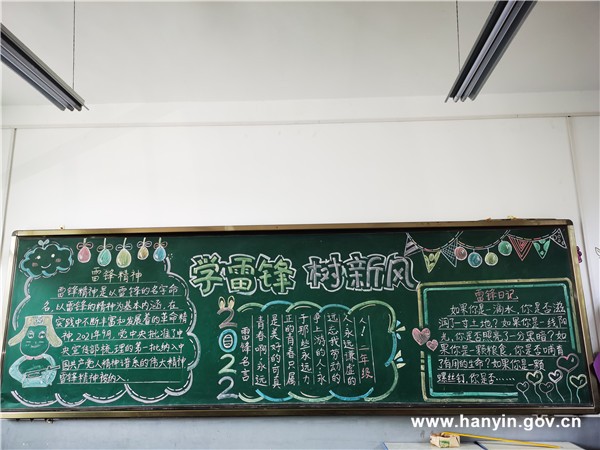 学雷锋 树新风
雷锋精神
雷锋精神是以雷锋的名字命
名,以雷锋的精神为基本内涵,在
实践中不断丰富和发展着的革命精
神,2021年9月,党中央批准了中
央宣传部梳理的第一批纳入中
国共产党人精神谱系的伟大精神
雷锋精神被纳入。
2022
雷锋名言
青春啊,永远
是美好的可真
正的青春只属
于那些永远力
争上游的人,永
远忘我劳动的
人,永远谦虚的
人! 年级
雷锋日记
如果你是一滴水,你是否滋
润了一寸土地?如果你是一线阳
光,你是否照亮了一分黑暗?如
果你是一颗粮食,你是否哺育
了有用的生命?如果你是一颗
螺丝钉,你是否……
www.hanyin.gov.cn